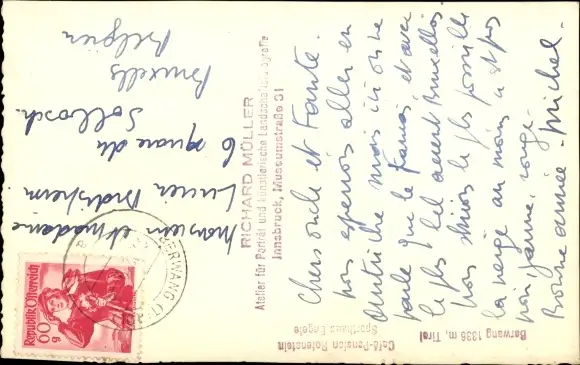 Chers oncle et tante.
nous espérions aller en
Autriche mais ici on ne
parle que le français et avec
le plus bel accent Bruxellois
nous skions le plus possible
la neige au moins n'est pas
noire, jaune, rouge.
Bonne année - Michel.
Café-Pension Rotenstein
Sporthaus Engele
Berwang 1336 m, Tirol
RICHARD MÜLLER
Atelier für Porträt und künstlerische Landschaftsfotografie
Innsbruck, Museumstraße 31
Monsieur et madame
Lucien
6 square du
Solbosch.
Bruxelles
Belgien
BERWANG
Republik Österreich
60
g